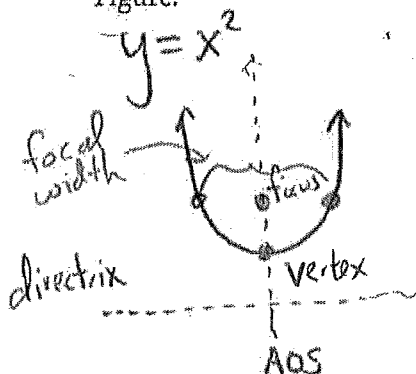 Figure.
y = x²
focal
width
focus
directrix
vertex
AOS